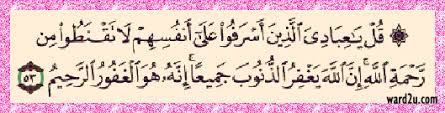 ۞ قُلْ يَـٰعِبَادِىَ ٱلَّذِينَ أَسْرَفُوا۟ عَلَىٰٓ أَنفُسِهِمْ لَا تَقْنَطُوا۟ مِن
رَّحْمَةِ ٱللَّهِ ۚ إِنَّ ٱللَّهَ يَغْفِرُ ٱلذُّنُوبَ جَمِيعًا ۚ إِنَّهُۥ هُوَ ٱلْغَفُورُ ٱلرَّحِيمُ ٥٣
ward2u.com